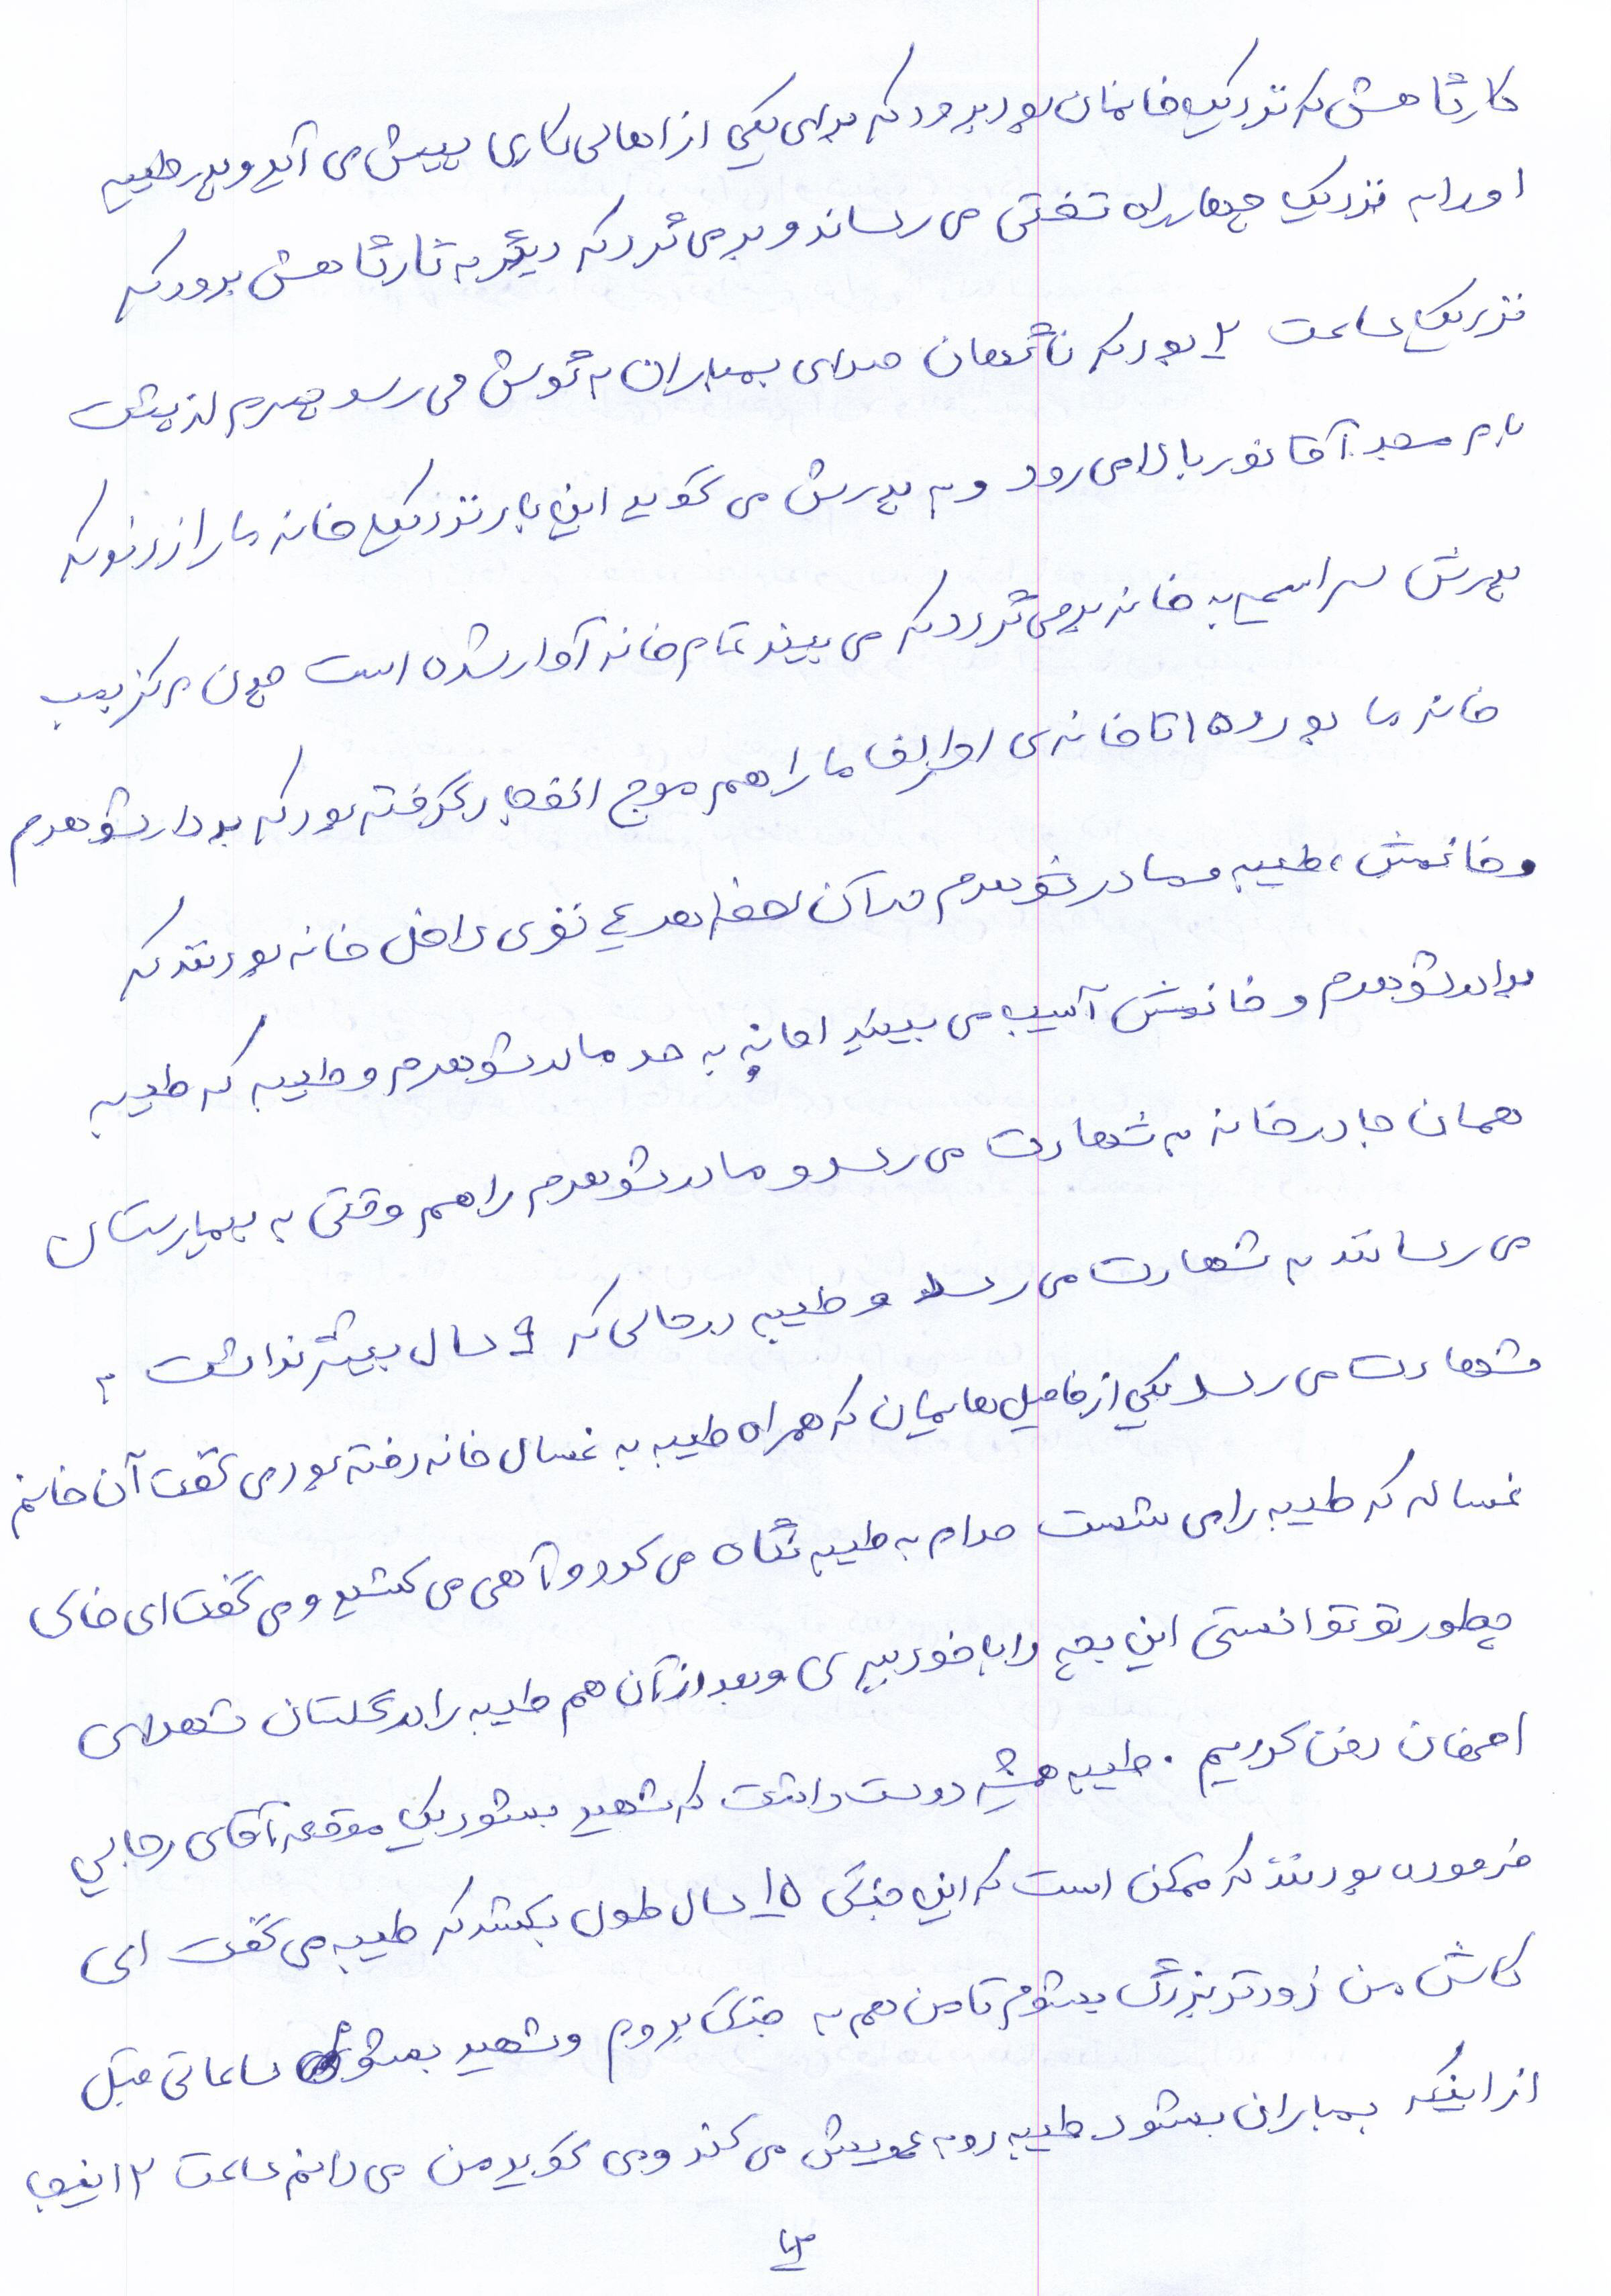 کارگاهش که نزدیک خانمان بود برود که برای یکی از اهالی کاری پیش می آید و پدر طیبه
او را به نزدیک چهارراه تختی می رساند و برمی گردد که دیگر به کارگاهش برود که
نزدیک ساعت ۲ بود که ناگهان صدای بمباران به گوش می رسد و همسرم از پشت
بام مسجد آقا نور بالا می رود و به پدرش می گوید این بار نزدیک خانه ما را زدند که
پدرش سراسیمه به خانه برمی گردد که می بیند تمام خانه آوار شده است چون مرکز بمب
خانه ما بود و ۱۵ تا خانه ی اطراف ما را هم موج انفجار گرفته بود که برادر شوهرم
و خانمش، طیبه و مادر شوهرم در آن لحظه هر ۴ نفری داخل خانه بودند که
برادر شوهرم و خانمش آسیب می بینند اما نه به حد مادر شوهرم و طیبه که طیبه
همان جا در خانه به شهادت می رسد و مادر شوهرم را هم وقتی به بیمارستان
می رسانند به شهادت می رسد و طیبه در حالی که ۹ سال بیشتر نداشت به
شهادت می رسد یکی از فامیل هایمان که همراه طیبه به غسال خانه رفته بود می گفت آن خانم
غساله که طیبه را می شست مدام به طیبه نگاه می کرد و آهی می کشید و می گفت ای خاک
چطور تو توانستی این بچه را با خود ببری و بعد از آن هم طیبه را در گلستان شهدای
اصفهان دفن کردیم. طیبه همیشه دوست داشت که شهید بشود یک موقعه آقای رجایی
فرموده بودند که ممکن است که این جنگ ۱۵ سال طول بکشد که طیبه می گفت ای
کاش من زودتر بزرگ بشوم تا من هم به جنگ بروم و شهید بشوم ساعاتی قبل
از اینکه بمباران بشود طیبه رو به عمویش می کند و می گوید من می دانم ساعت ۲ اینجا